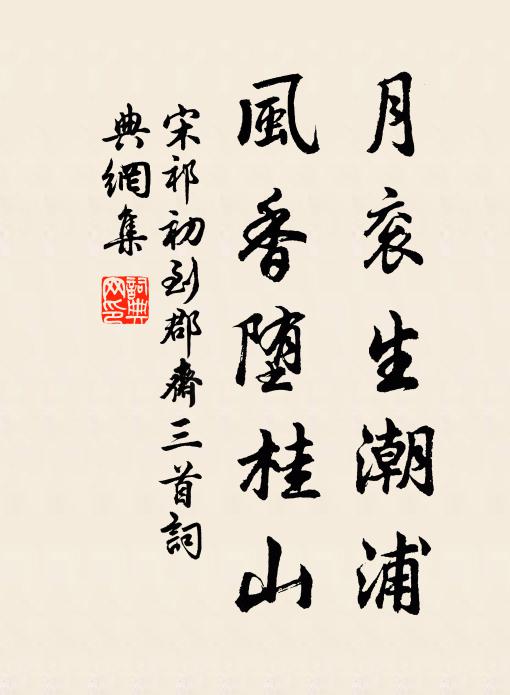 月衮生潮浦
風香堕桂山
宋祁初到郡齋三首詞
典網集
詞典
网印